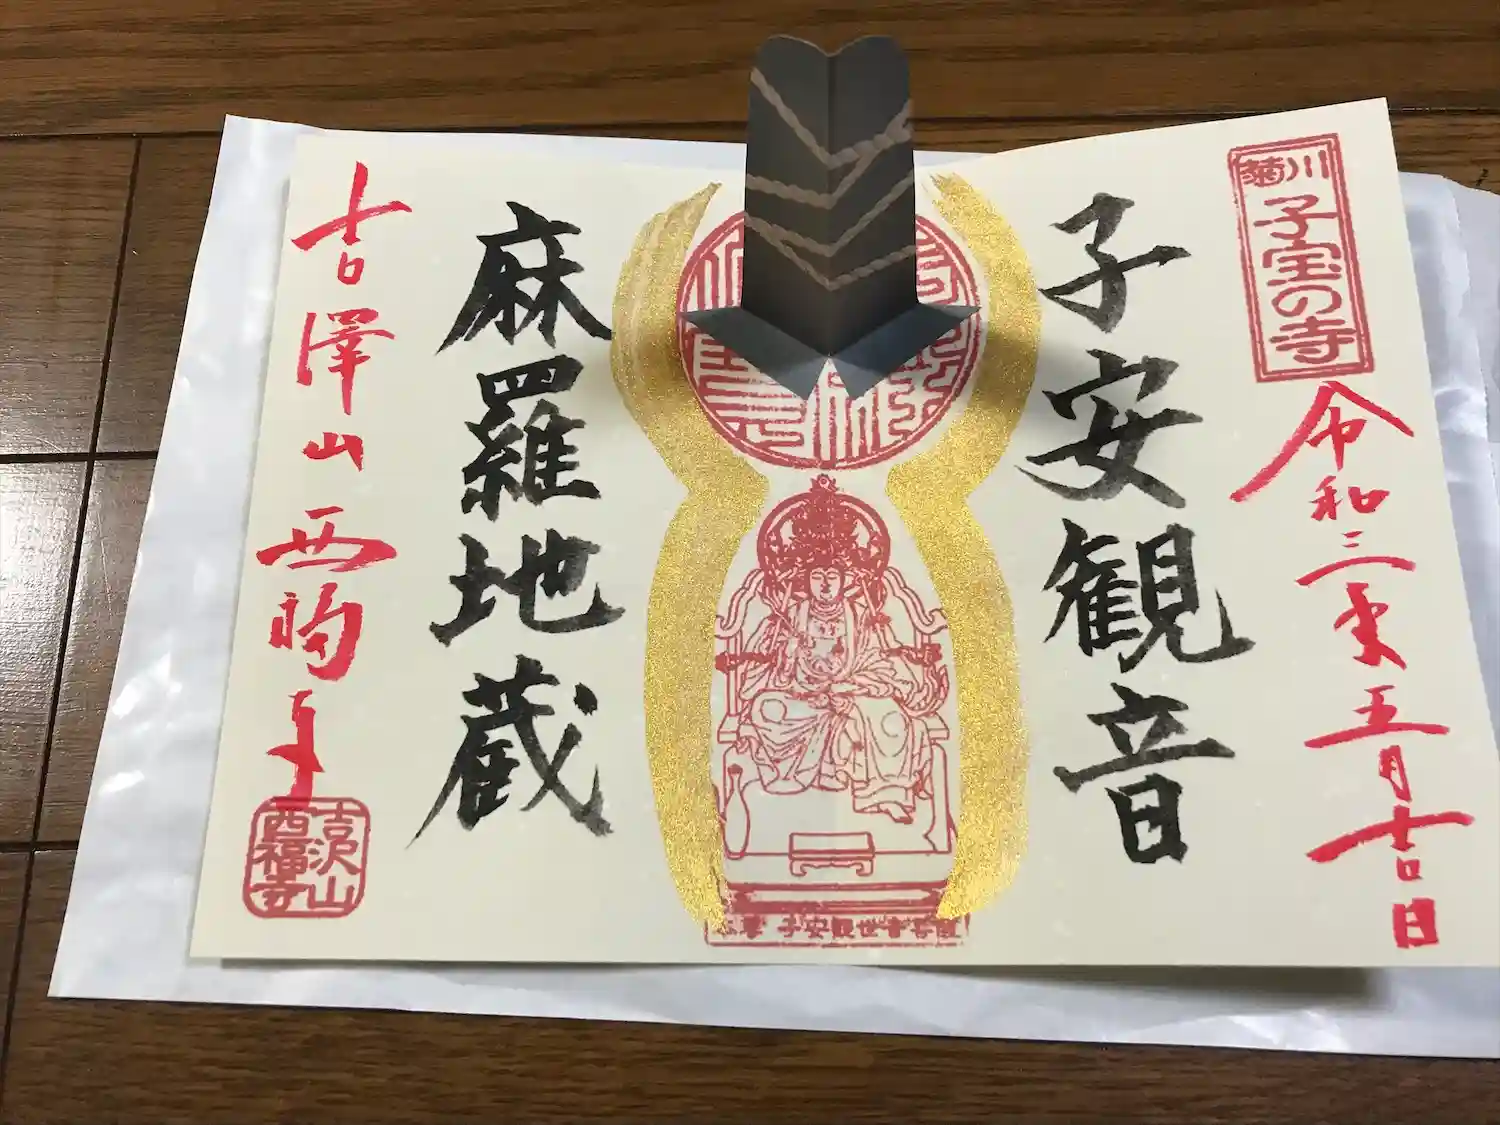 菊川
子宝の寺
令和三年五月吉日
子安観音
子安観世音菩薩
麻羅地蔵
吉澤山西福寺
吉沢山
西福寺